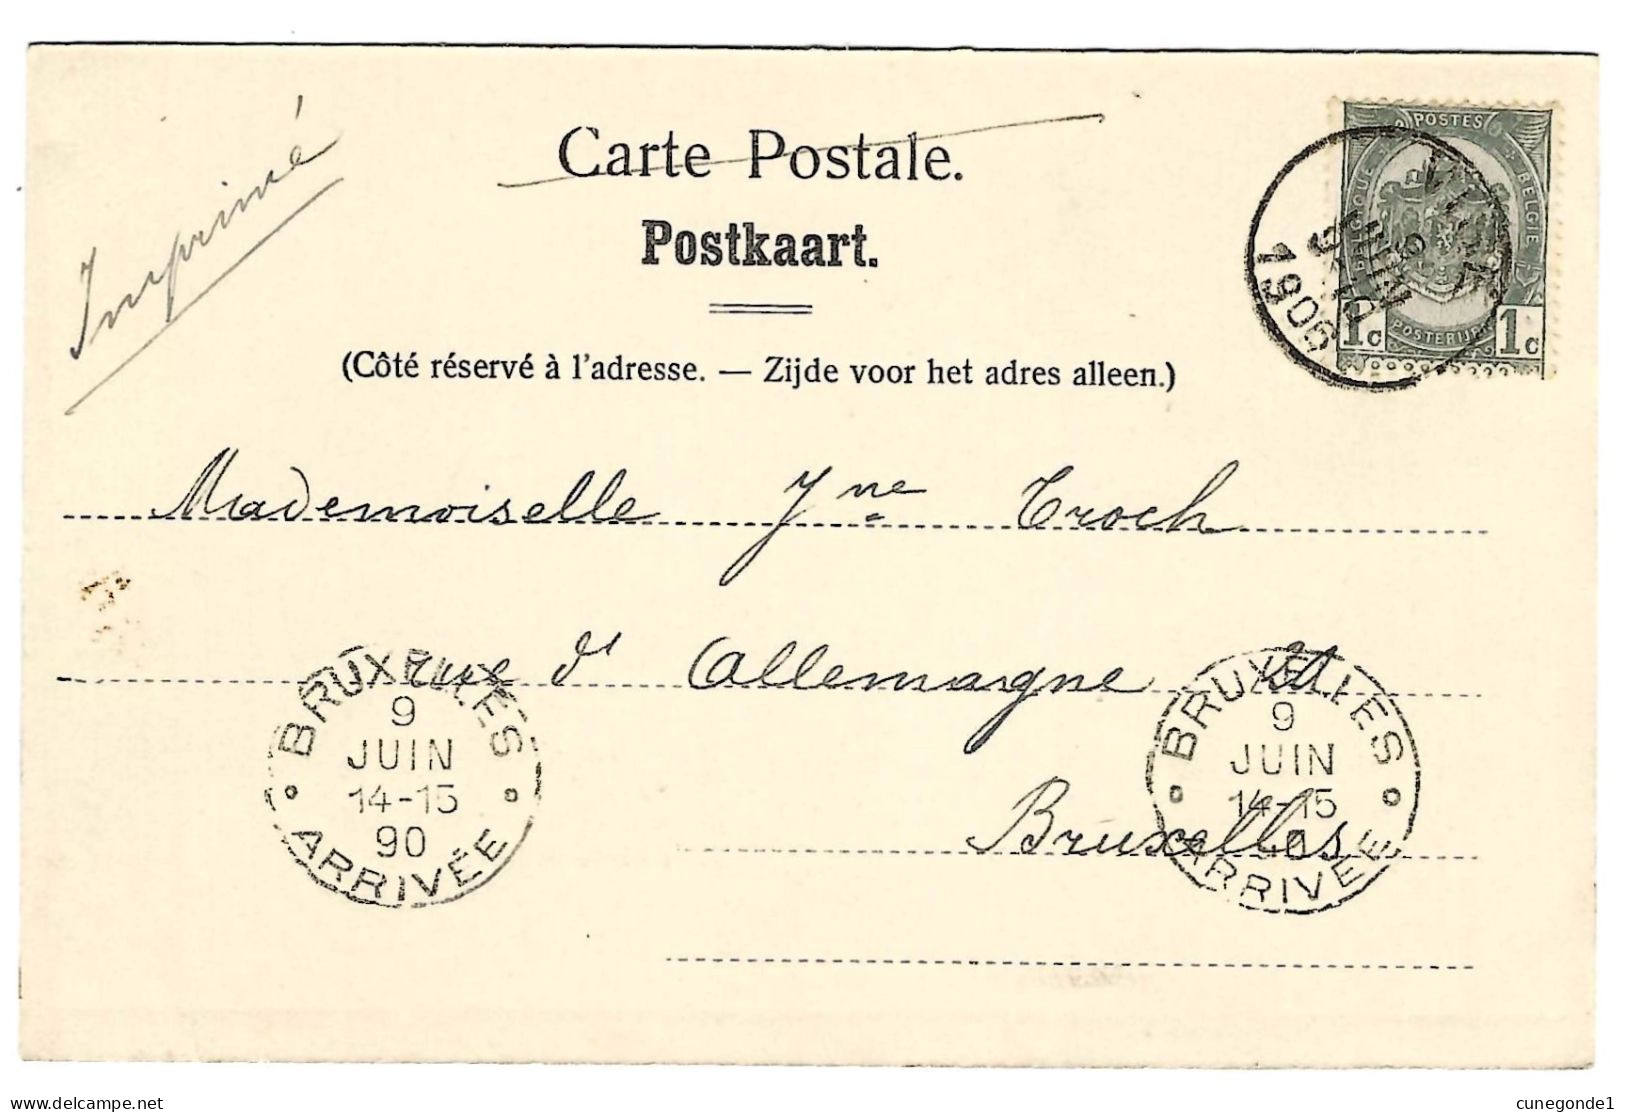 Imprimé
Carte Postale.
Postkaart.
(Côté réservé à l'adresse. — Zijde voor het adres alleen.)
POSTES
BELGIQUE
BELGIË
POSTERIJEN
1c 1c
9 JUIN
1906
Mademoiselle Jne Troch
rue d'Allemagne
Bruxelles
BRUXELLES
9
JUIN
14-15
90
ARRIVÉE
BRUXELLES
9
JUIN
14-15
ARRIVÉE
delcampe.net
cunegonde1